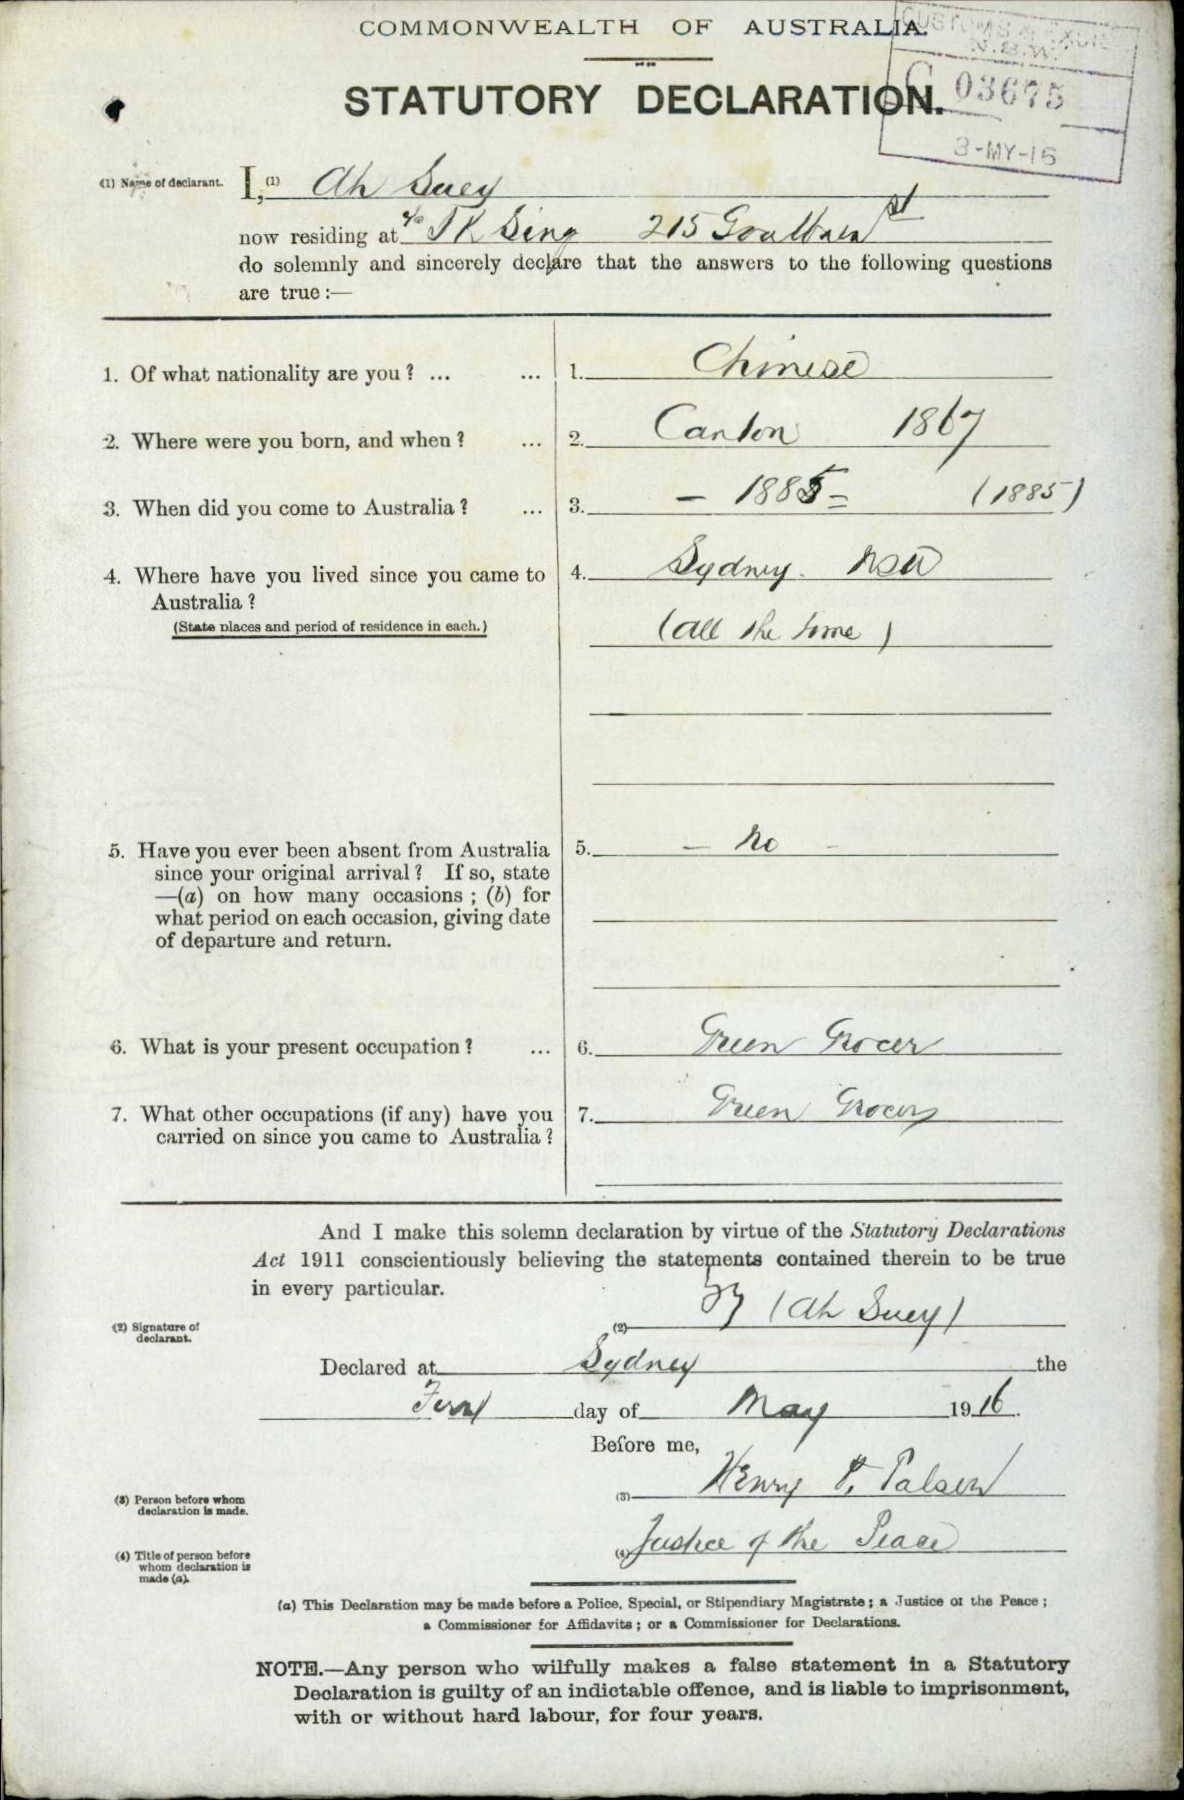 COMMONWEALTH OF AUSTRALIA.
CUSTOMS & EXCISE
N.S.W.
STATUTORY DECLARATION.
C 03675
3-MY-16
(1) Name of declarant. I,(1) Ah Suey
now residing at c/o T K Sing 215 Goulburn St
do solemnly and sincerely declare that the answers to the following questions
are true:—
1. Of what nationality are you? ... ... 1. Chinese
2. Where were you born, and when? ... 2. Canton 1867
3. When did you come to Australia? ... 3. – 1885 = (1885)
4. Where have you lived since you came to 4. Sydney. NSW
Australia?
(State places and period of residence in each.) (all the time)
5. Have you ever been absent from Australia 5. – No –
since your original arrival? If so, state
—(a) on how many occasions; (b) for
what period on each occasion, giving date
of departure and return.
6. What is your present occupation? ... 6. Green Grocer
7. What other occupations (if any) have you 7. Green Grocer
carried on since you came to Australia?
And I make this solemn declaration by virtue of the Statutory Declarations
Act 1911 conscientiously believing the statements contained therein to be true
in every particular.
(2) Signature of (2) (Ah Suey)
declarant.
Declared at Sydney the
First day of May 1916.
Before me,
(3) Person before whom (3) Henry
declaration is made.
(4) Title of person before (4) Justice of the Peace
whom declaration is
made (a).
(a) This Declaration may be made before a Police, Special, or Stipendiary Magistrate; a Justice of the Peace;
a Commissioner for Affidavits; or a Commissioner for Declarations.
NOTE.—Any person who wilfully makes a false statement in a Statutory
Declaration is guilty of an indictable offence, and is liable to imprisonment,
with or without hard labour, for four years.